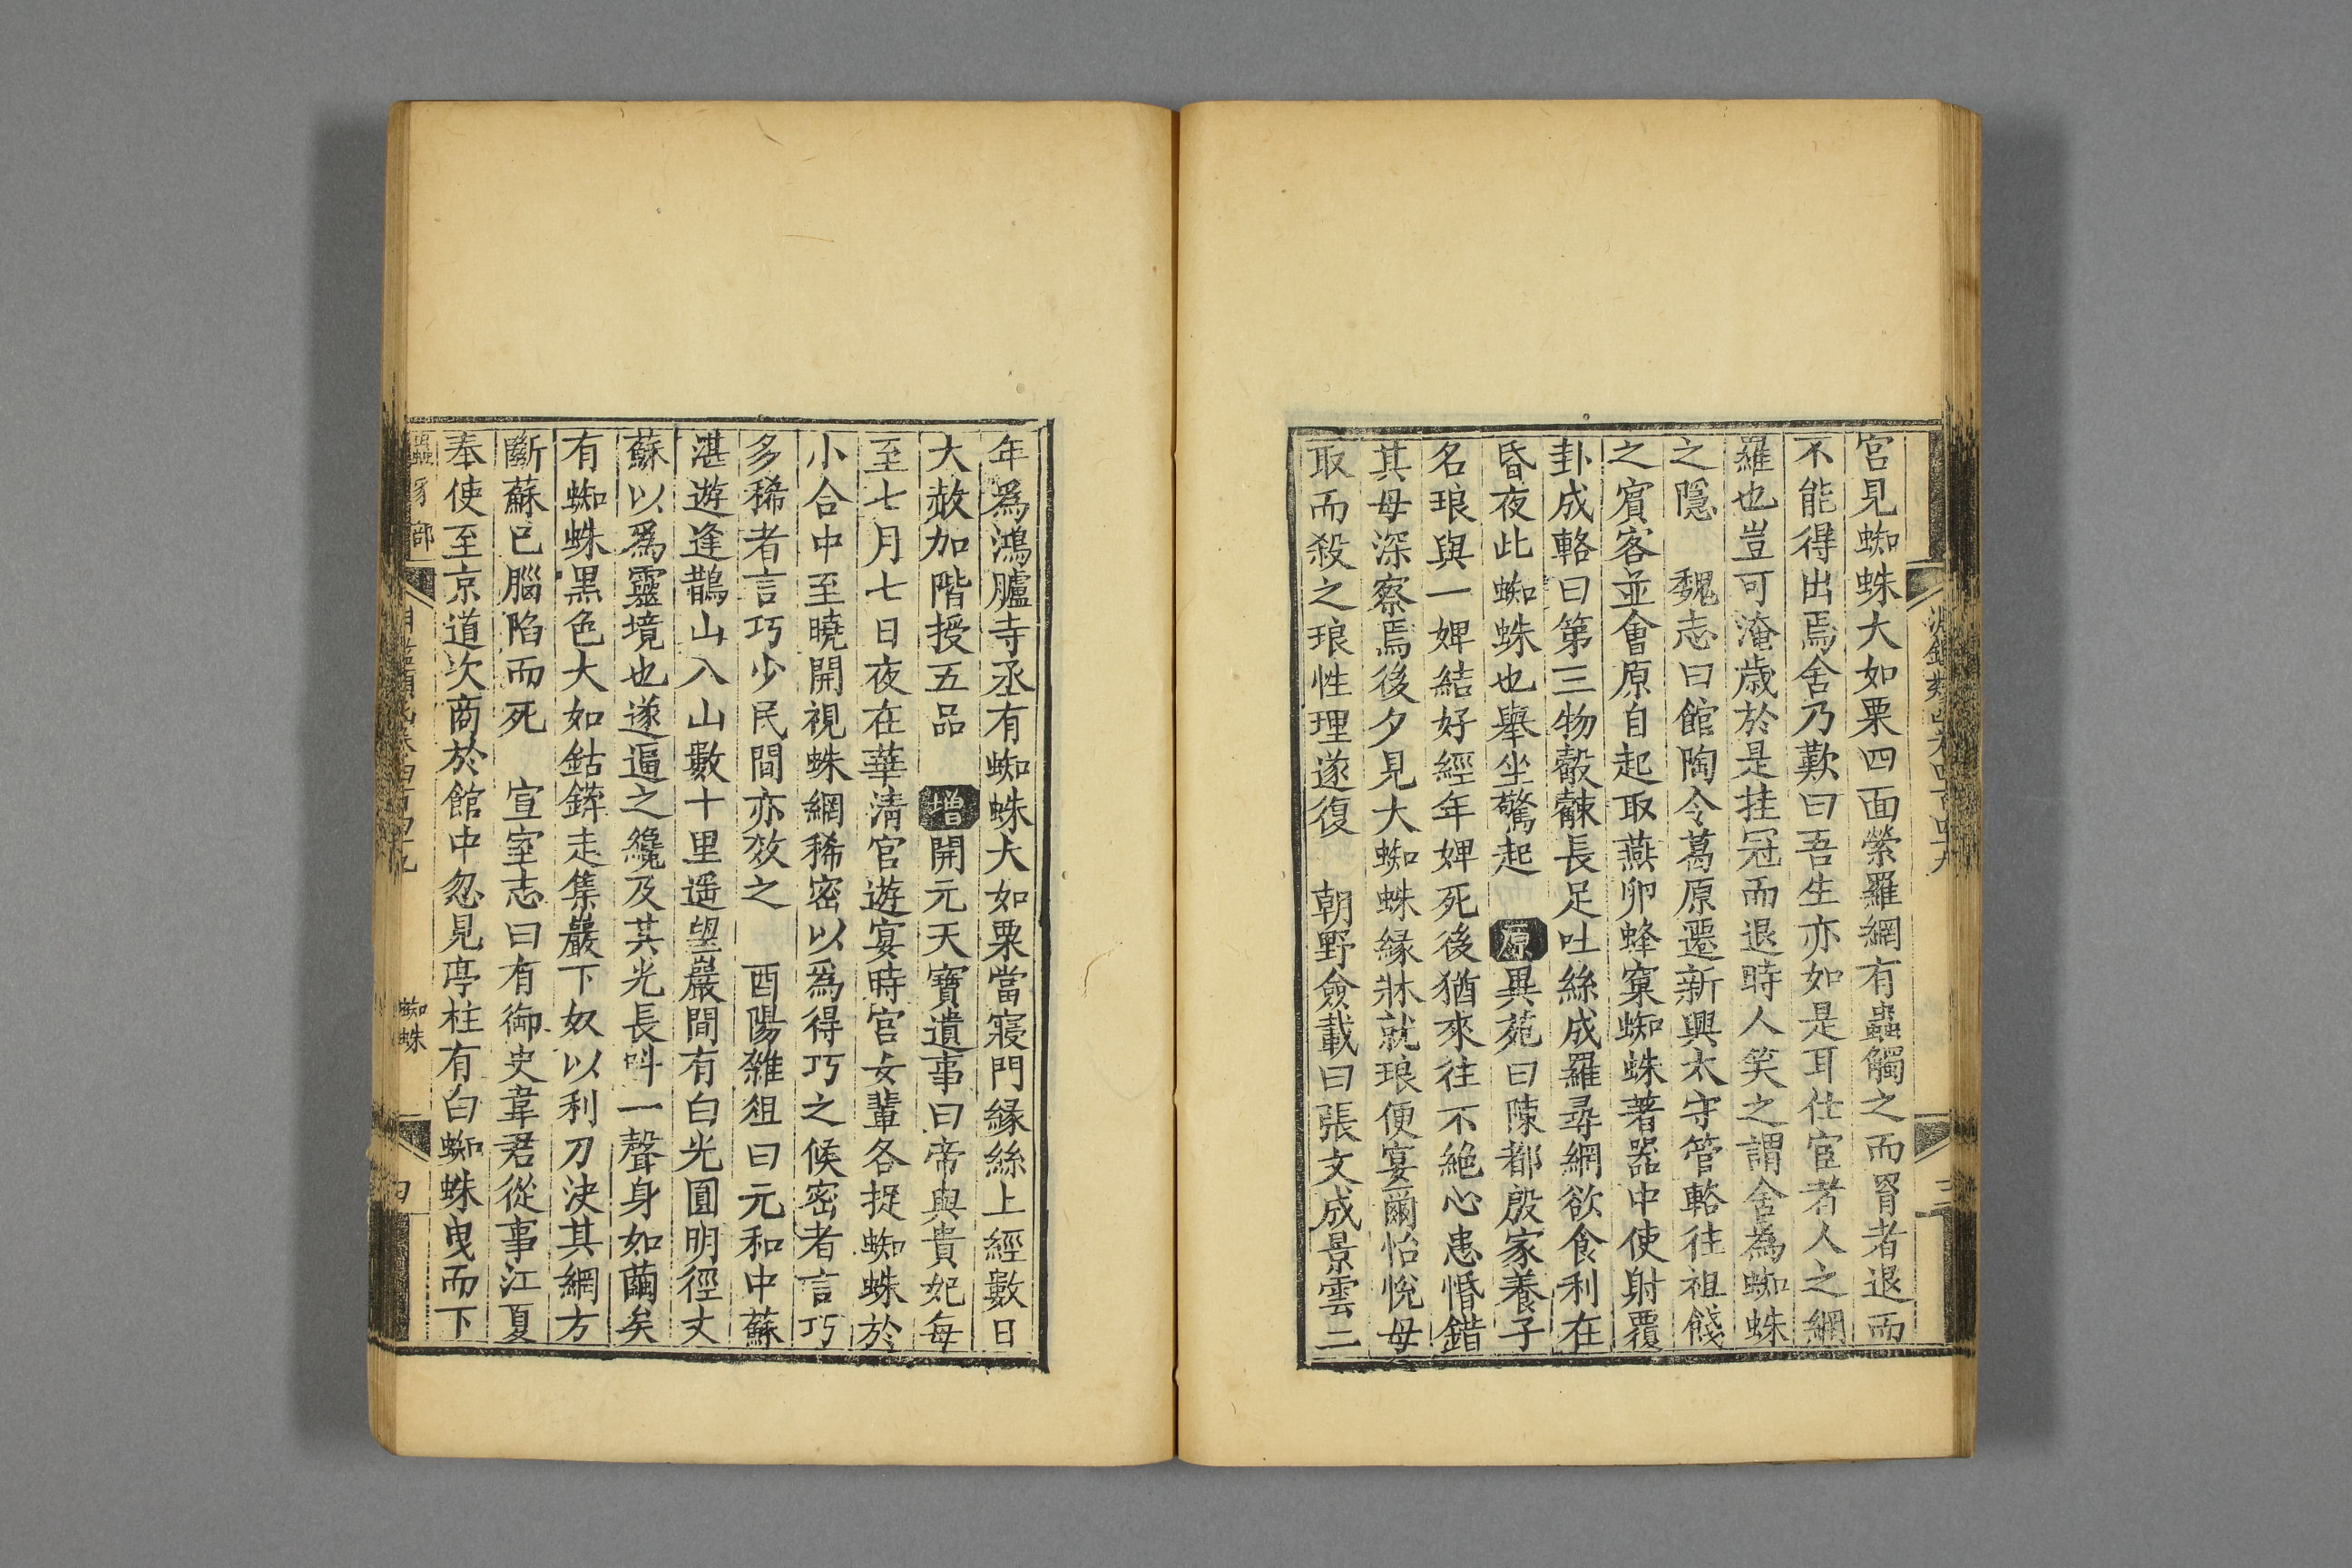 宮見蜘蛛大如栗四面縈羅網有蟲觸之而罥者退而
不能得出焉舍乃歎曰吾生亦如是耳仕宦者人之網
羅也豈可淹歳於是挂冠而退時人笑之謂舍為蜘蛛
之隱　魏志曰館陶令葛原遷新興太守管輅往祖餞
之賓客並會原自起取燕卵蜂窠蜘蛛著器中使射覆
卦成輅曰第三物觳觫長足吐絲成羅尋網欲食利在
昏夜此蜘蛛也舉坐驚起　原異苑曰陳郡殷家養子
名琅與一婢結好經年婢死後猶來往不絶心患惛錯
其母深察焉後夕見大蜘蛛縁牀就琅便宴爾怡悅母
取而殺之琅性理遂復　朝野僉載曰張文成景雲二
年爲鴻臚寺丞有蜘蛛大如栗當寢門縁絲上經數日
大赦加階授五品　增開元天寶遺事曰帝與貴妃每
至七月七日夜在華清宮遊宴時宮女輩各捉蜘蛛於
小合中至曉開視蛛網稀密以爲得巧之候密者言巧
多稀者言巧少民間亦效之　酉陽雜俎曰元和中蘇
湛遊逢鵲山入山數十里遥望巖間有白光圓明徑丈
蘇以爲靈境也遂逼之纔及其光長呌一聲身如繭矣
有蜘蛛黒色大如鈷鉧走集巖下奴以利刀決其網方
斷蘇已腦陷而死　宣室志曰有御史韋君從事江夏
奉使至京道次商於館中忽見亭柱有白蜘蛛曳而下
蜘蛛